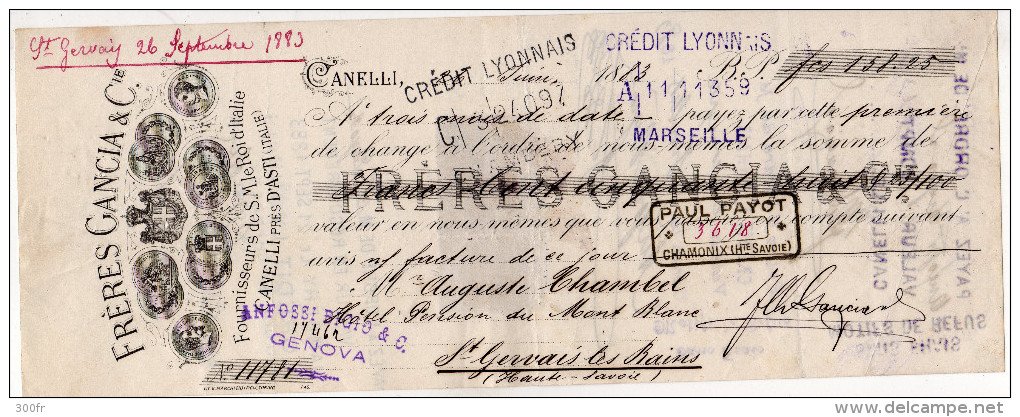 St Gervais 26 Septembre 1883
FRÈRES GANCIA & CIE
Fournisseurs de S. M. le Roi d'Italie
CANELLI PRÈS D'ASTI (ITALIE)
CANELLI, Juin 1883 B. P. fcs 158.25
CRÉDIT LYONNAIS
CRÉDIT LYONNAIS
A 1111359
MARSEILLE
A trois mois de date payez par cette première
de change à l'ordre de nous-mêmes la somme de
FRÈRES GANCIA & CIE
Francs Cent cinquante huit 25/100
valeur en nous-mêmes que vous passerez en compte suivant
PAUL PAYOT
3618
CHAMONIX (HTE SAVOIE)
avis n/ facture de ce jour
Mr Auguste Chambel
Hôtel Pension du Mont Blanc
St Gervais les Bains
(Haute-Savoie)
ANFOSSI & C.
17462
GENOVA
No 11781
PAYEZ A L'ORDRE DE
VALEUR
CANELLI
MOTIFS DE REFUS
SANS AVIS
300fr
www.delcampe.net